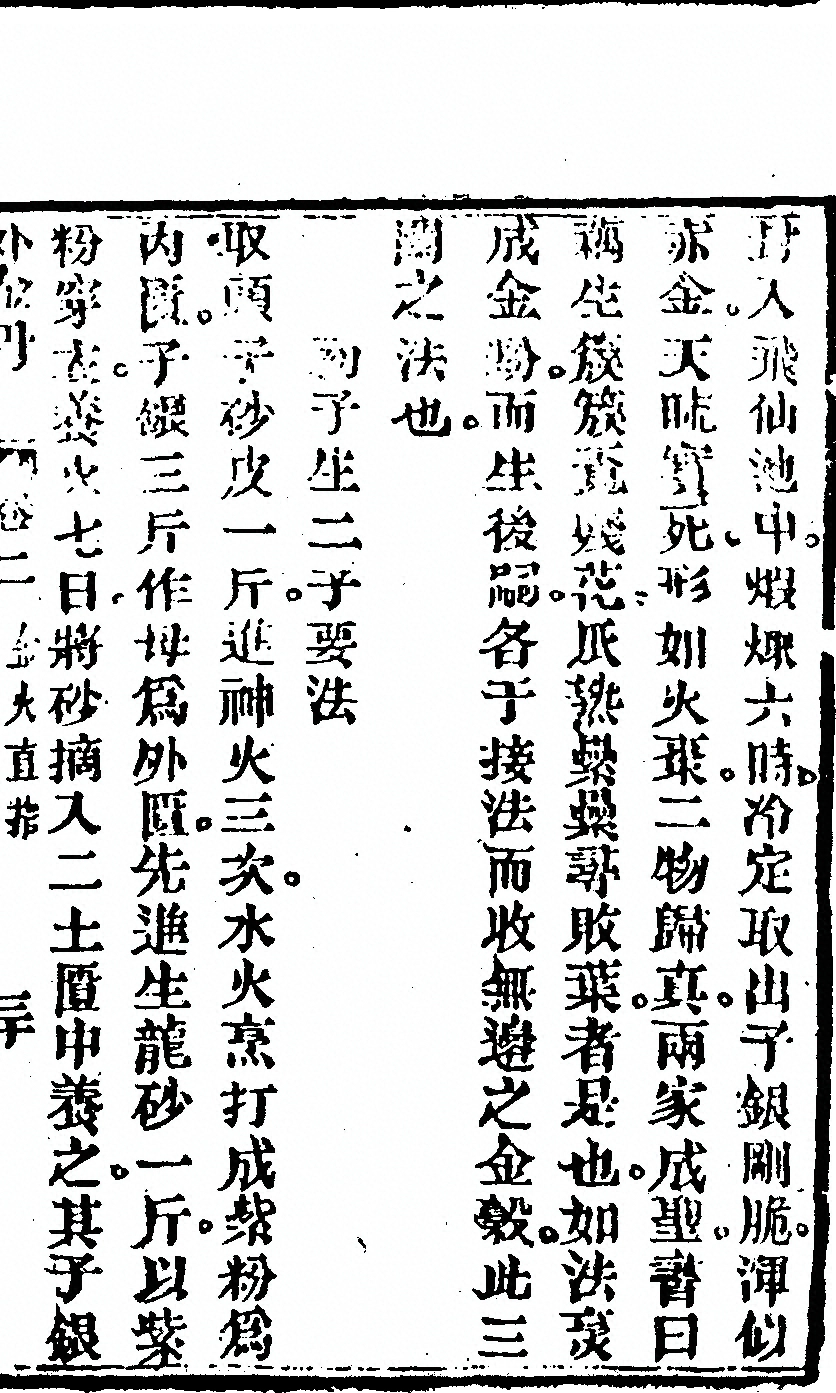 升入飛仙池中。煆煉六時。冷定取出子銀剛脆。渾似
赤金。天硫實死。形如火棗。二物歸真。兩家成聖。譜曰
藕生簇簇荒殘花。瓜熟藥藥尋敗葉。者是也。如法煑
成金粉。而生後嗣。各于接法而收無邊之金穀。此三
関之法也。
狗子生二子要法
取頭子砂皮一斤。進神火三次。水火烹打成紫粉爲
內匱。子銀三斤作母爲外匱。先進生龍砂一斤。以紫
粉穿衣。養火七日。將砂摘入二土匱中養之。其子銀
外金丹 卷二 金火直指 三十